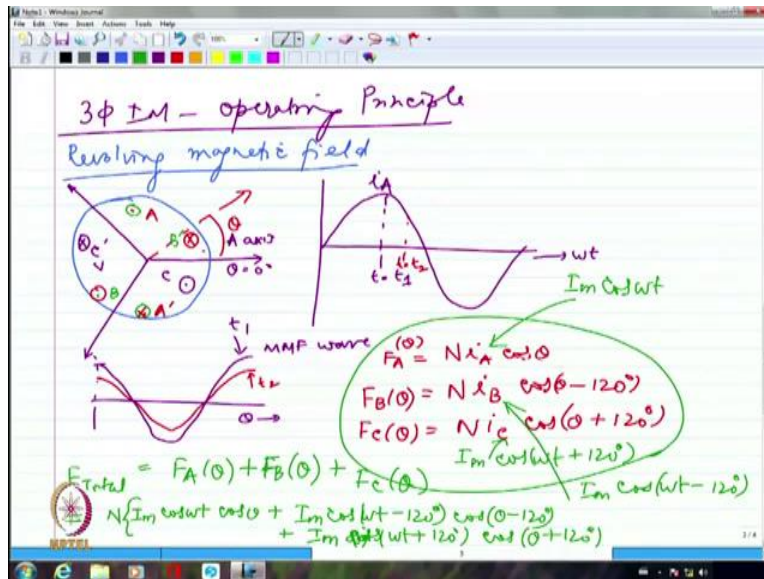 Note1 - Windows Journal
File Edit View Insert Actions Tools Help
100%
B I
3Φ IM - operating Principle
Revolving magnetic field
A
B'
θ
A axis
θ = 0°
C'
C
B
A'
iA
t = t1
t = t2
→ wt
t1
MMF wave
t2
θ →
Im cos wt
FA(θ) = N iA cos θ
FB(θ) = N iB cos(θ - 120°)
FC(θ) = N iC cos(θ + 120°)
Im cos(wt + 120°)
Im cos(wt - 120°)
FTotal = FA(θ) + FB(θ) + FC(θ)
N{Im cos wt cos θ + Im cos(wt - 120°) cos(θ - 120°)
+ Im cos(wt + 120°) cos(θ + 120°)
NPTEL